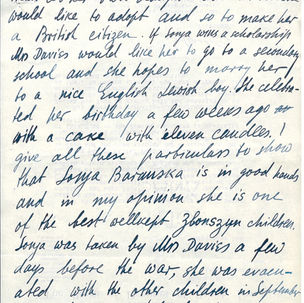 would like to adopt and so to make her
a British citizen. If Sonja wins a scholarship
Mrs Davies would like her to go to a secondary
school and she hopes to marry her
to a nice English Jewish boy. She celebra-
ted her birthday a few weeks ago
with a cake with eleven candles. I
give all these particulars to show
that Sonja Baranska is in good hands
and in my opinion she is one
of the best wellkept Zbonszyn children.
Sonja was taken by Mrs Davies a few
days before the war, she was evacu-
ated with the other children in September